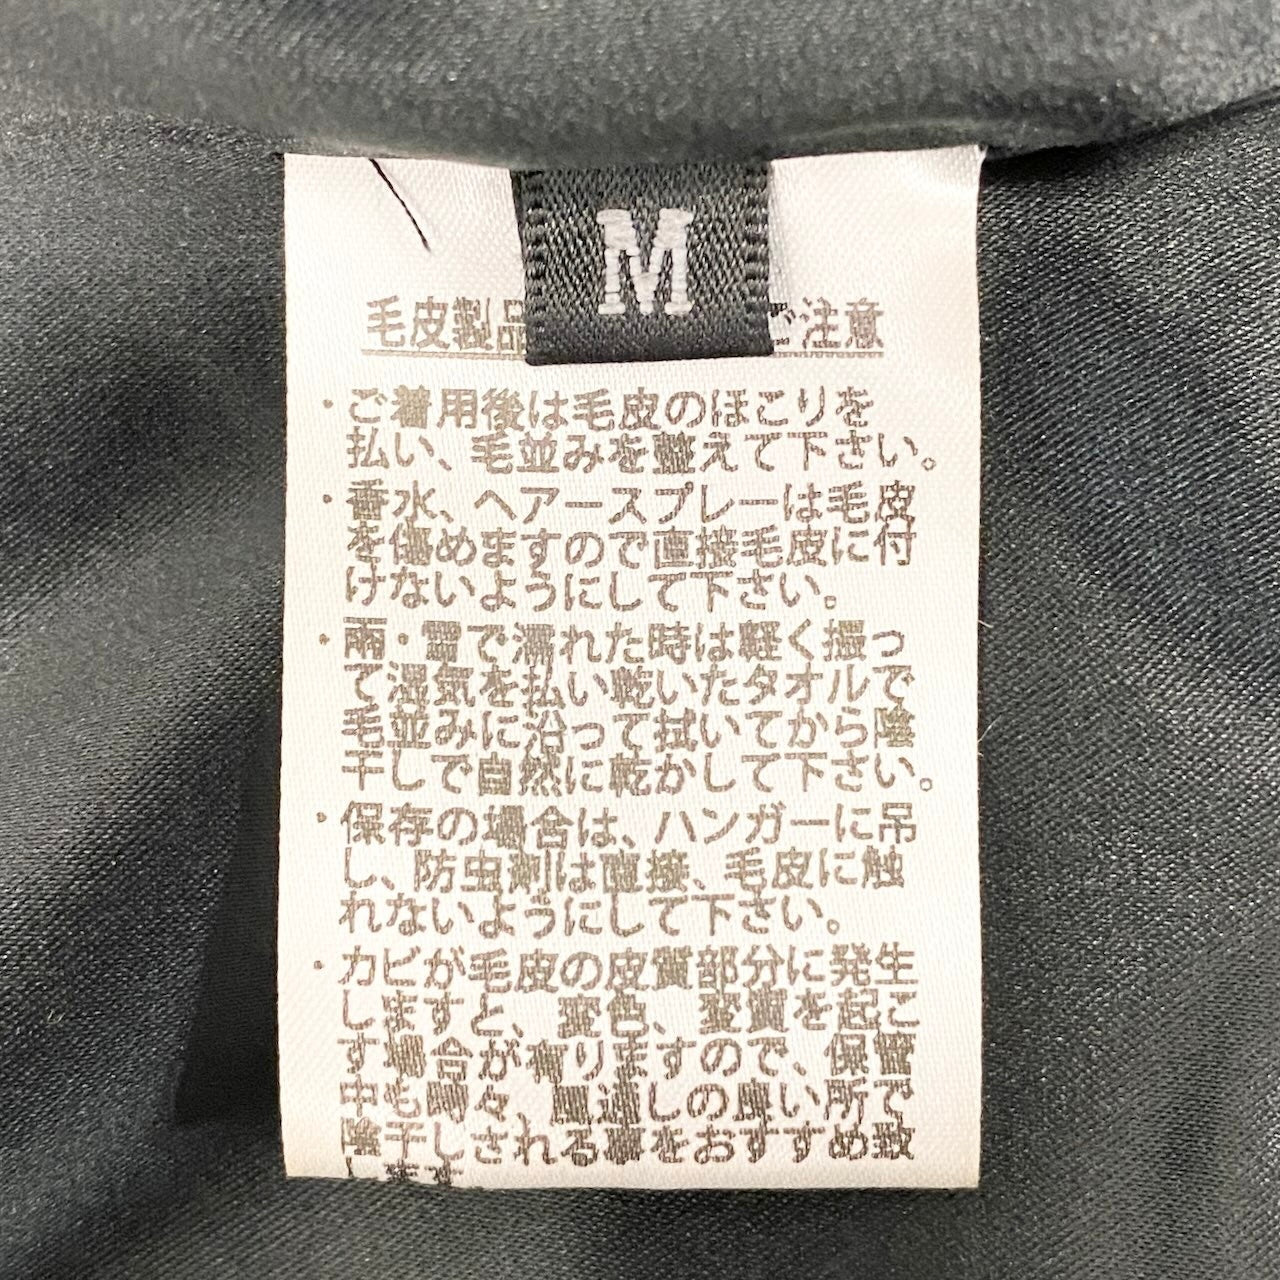 M
毛皮製品 ご注意
・ご着用後は毛皮のほこりを
払い、毛並みを整えて下さい。
・香水、ヘアースプレーは毛皮
を傷めますので直接毛皮に付
けないようにして下さい。
・雨・雪で濡れた時は軽く振っ
て湿気を払い乾いたタオルで
毛並みに沿って拭いてから陰
干しで自然に乾かして下さい。
・保存の場合は、ハンガーに吊
し、防虫剤は直接、毛皮に触
れないようにして下さい。
・カビが毛皮の皮質部分に発生
しますと、変色、変質を起こ
す場合が有りますので、保管
中も時々、風通しの良い所で
陰干しされる事をおすすめ致
します